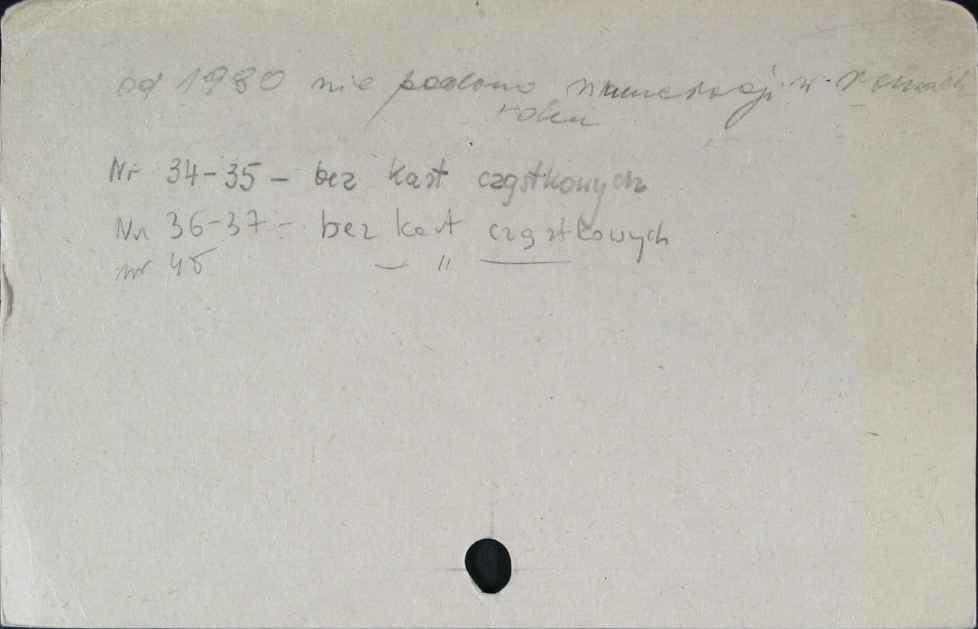 od 1980 nie podano numeracji w ramach
roku
Nr 34-35 - bez kart cząstkowych
Nr 36-37 - bez kart cząstkowych
nr 45 — " —